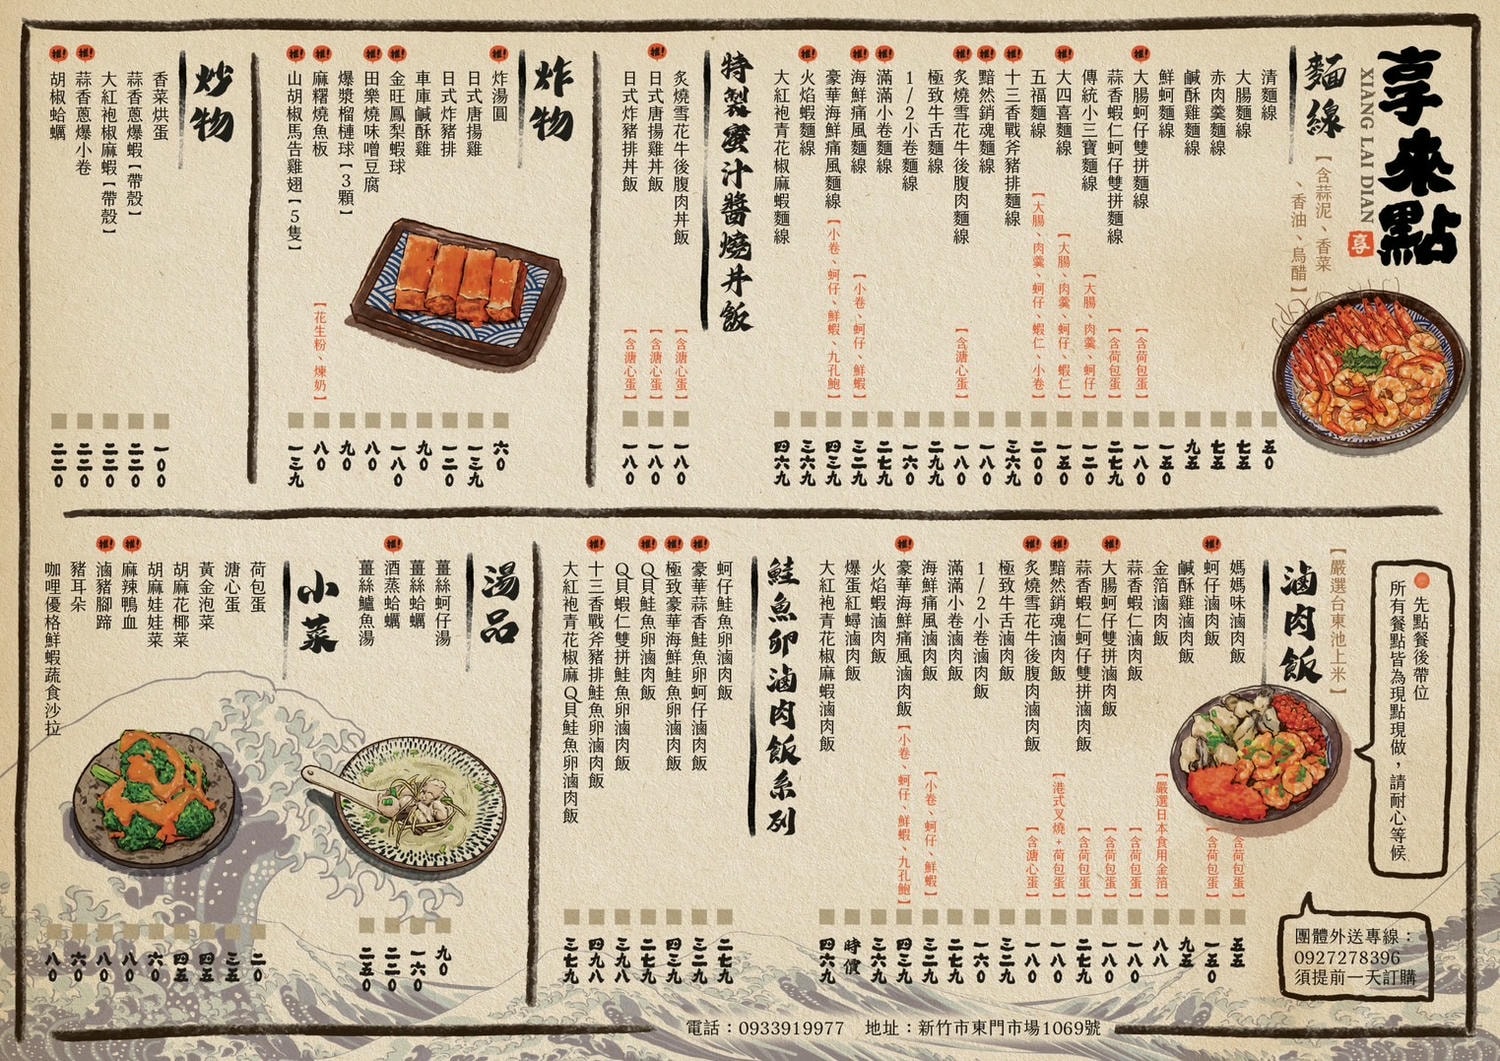 享來點
XIANG LAI DIAN
享
麵線
【含蒜泥、香菜
、香油、烏醋】
清麵線 五0
大腸麵線 七五
赤肉羹麵線 七五
鹹酥雞麵線 九五
鮮蚵麵線 一五0
推! 大腸蚵仔雙拼麵線【含荷包蛋】 一八0
蒜香蝦仁蚵仔雙拼麵線【含荷包蛋】 二七九
傳統小三寶麵線【大腸、肉羹、蚵仔】 一二0
推! 大四喜麵線【大腸、肉羹、蚵仔、蝦仁】 一五0
五福麵線【大腸、肉羹、蚵仔、蝦仁、小卷】 二00
推! 十三香戰斧豬排麵線 三六九
推! 黯然銷魂麵線 一八0
推! 炙燒雪花牛後腹肉麵線【含溏心蛋】 一八0
極致牛舌麵線 二九九
1/2小卷麵線 一六0
推! 滿滿小卷麵線 二七九
推! 海鮮痛風麵線【小卷、蚵仔、鮮蝦】 三二九
豪華海鮮痛風麵線【小卷、蚵仔、鮮蝦、九孔鮑】 四三九
推! 火焰蝦麵線 三六九
大紅袍青花椒麻蝦麵線 四六九
特製蜜汁醬燒丼飯
炙燒雪花牛後腹肉丼飯【含溏心蛋】 一八0
推! 日式唐揚雞丼飯【含溏心蛋】 一八0
日式炸豬排丼飯【含溏心蛋】 一八0
炸物
推! 炸湯圓 六0
日式唐揚雞 一三九
日式炸豬排 一二0
車庫鹹酥雞 九0
推! 金旺鳳梨蝦球 一八0
推! 田樂燒味噌豆腐 八0
爆漿榴槤球【3顆】 九0
推! 麻糬燒魚板【花生粉、煉奶】 八0
推! 山胡椒馬告雞翅【5隻】 一三九
炒物
香菜烘蛋 一00
蒜香蔥爆蝦【帶殼】 二二0
大紅袍椒麻蝦【帶殼】 二二0
推! 蒜香蔥爆小卷 二二0
推! 胡椒蛤蠣 二二0
先點餐後帶位
所有餐點皆為現點現做，請耐心等候
團體外送專線：
0927278396
須提前一天訂購
【嚴選台東池上米】
滷肉飯
媽媽味滷肉飯【含荷包蛋】 五五
推! 蚵仔滷肉飯【含荷包蛋】 一五0
鹹酥雞滷肉飯 九五
金箔滷肉飯【嚴選日本食用金箔】 八八
蒜香蝦仁滷肉飯【含荷包蛋】 一六0
推! 大腸蚵仔雙拼滷肉飯【含荷包蛋】 一八0
蒜香蝦仁蚵仔雙拼滷肉飯【含荷包蛋】 二七九
推! 黯然銷魂滷肉飯【港式叉燒+荷包蛋】 一八0
推! 炙燒雪花牛後腹肉滷肉飯【含溏心蛋】 一八0
極致牛舌滷肉飯 三二九
1/2小卷滷肉飯 一六0
滿滿小卷滷肉飯 二七九
海鮮痛風滷肉飯【小卷、蚵仔、鮮蝦】 三二九
推! 豪華海鮮痛風滷肉飯【小卷、蚵仔、鮮蝦、九孔鮑】 四三九
火焰蝦滷肉飯 三六九
爆蛋紅蟳滷肉飯 時價
大紅袍青花椒麻蝦滷肉飯 四六九
鮭魚卵滷肉飯系列
蚵仔鮭魚卵滷肉飯 二七九
推! 豪華蒜香鮭魚卵蚵仔滷肉飯 三二九
推! 極致豪華海鮮鮭魚卵滷肉飯 四三九
推! Q貝鮭魚卵滷肉飯 二七九
Q貝蝦仁雙拼鮭魚卵滷肉飯 三九八
推! 十三香戰斧豬排鮭魚卵滷肉飯 四九八
大紅袍青花椒麻Q貝鮭魚卵滷肉飯 三七九
湯品
薑絲蚵仔湯 九0
薑絲蛤蠣 一六0
推! 酒蒸蛤蠣 二二0
薑絲鱸魚湯 二五0
小菜
荷包蛋 二0
溏心蛋 三五
黃金泡菜 四五
胡麻花椰菜 四五
胡麻娃娃菜 六0
推! 麻辣鴨血 八0
推! 滷豬腳蹄 八0
豬耳朵 六0
咖哩優格鮮蝦蔬食沙拉 八0
電話：0933919977 地址：新竹市東門市場1069號